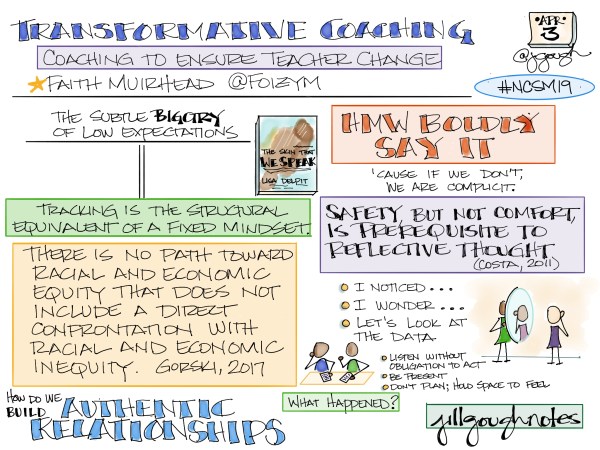 TRANSFORMATIVE COACHING
APR
3
@jgough
COACHING TO ENSURE TEACHER CHANGE
FAITH MUIRHEAD @FOIZYM
#NCSM19
THE SUBTLE BIGOTRY
OF LOW EXPECTATIONS
THE SKIN THAT
WE SPEAK
LISA DELPIT
HMW BOLDLY
SAY IT
'CAUSE IF WE DON'T,
WE ARE COMPLICIT.
TRACKING IS THE STRUCTURAL
EQUIVALENT OF A FIXED MINDSET.
SAFETY, BUT NOT COMFORT,
IS PREREQUISITE TO
REFLECTIVE THOUGHT
(COSTA, 2011)
THERE IS NO PATH TOWARD
RACIAL AND ECONOMIC
EQUITY THAT DOES NOT
INCLUDE A DIRECT
CONFRONTATION WITH
RACIAL AND ECONOMIC
INEQUITY. GORSKI, 2017
I NOTICED...
I WONDER...
LET'S LOOK AT
THE DATA
LISTEN WITHOUT
OBLIGATION TO ACT
BE PRESENT
DON'T PLAN; HOLD SPACE TO FEEL
WHAT HAPPENED?
HOW DO WE
BUILD AUTHENTIC
RELATIONSHIPS
jillgoughnotes